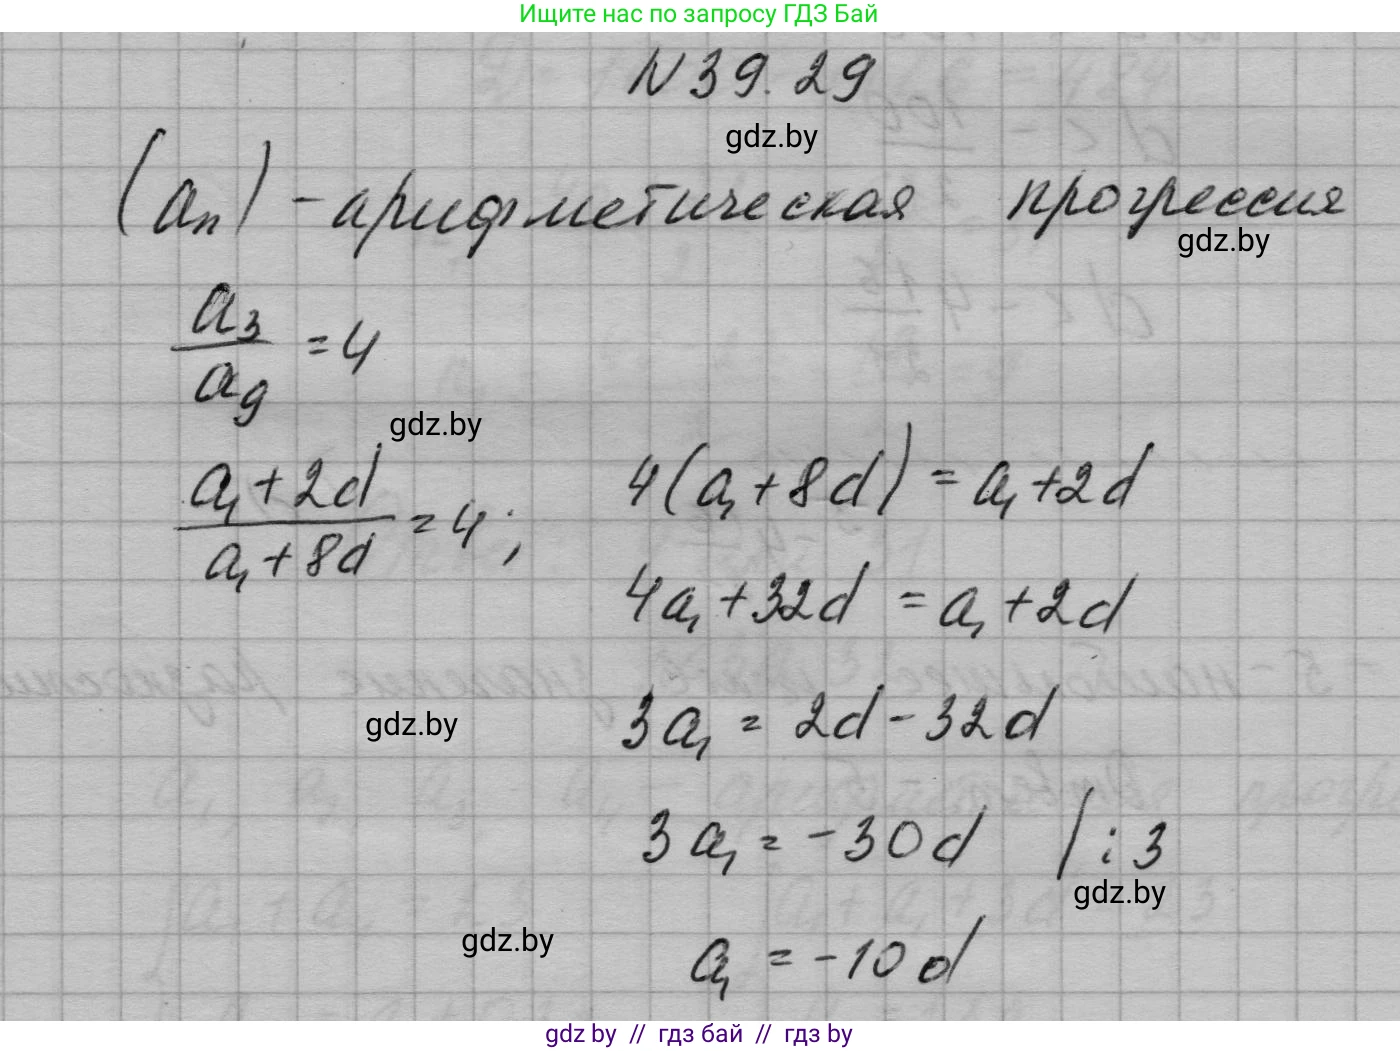 Ищите нас по запросу ГДЗ Бай
N 39.29
gdz.by
(aₙ) - арифметическая прогрессия
gdz.by
a₃/a₉ = 4
gdz.by
(a₁ + 2d)/(a₁ + 8d) = 4;
4(a₁ + 8d) = a₁ + 2d
4a₁ + 32d = a₁ + 2d
gdz.by
3a₁ = 2d - 32d
3a₁ = -30d | : 3
gdz.by
gdz.by
a₁ = -10d
gdz by // гдз бай // гдз by